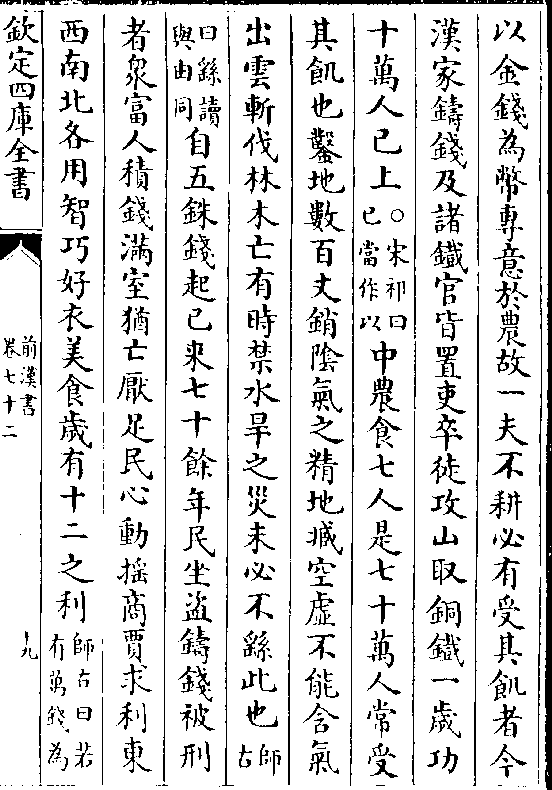 以金錢為幣專意於農故一夫不耕必有受其飢者今
漢家鑄錢及諸鐵官皆置吏卒徒攻山取銅鐵一歲功
十萬人已上○宋祁曰已當作以中農食七人是七十萬人常受
其飢也鑿地數百丈銷陰氣之精地臧空虛不能含氣
出雲斬伐林木亡有時禁水旱之災未必不繇此也師古
曰繇讀與由同自五銖錢起已来七十餘年民坐盜鑄錢被刑
者衆富人積錢滿室猶亡厭足民心動摇商賈求利東
西南北各用智巧好衣美食歲有十二之利師古曰若有萬錢為
欽定四庫全書
前漢書
卷七十二
九